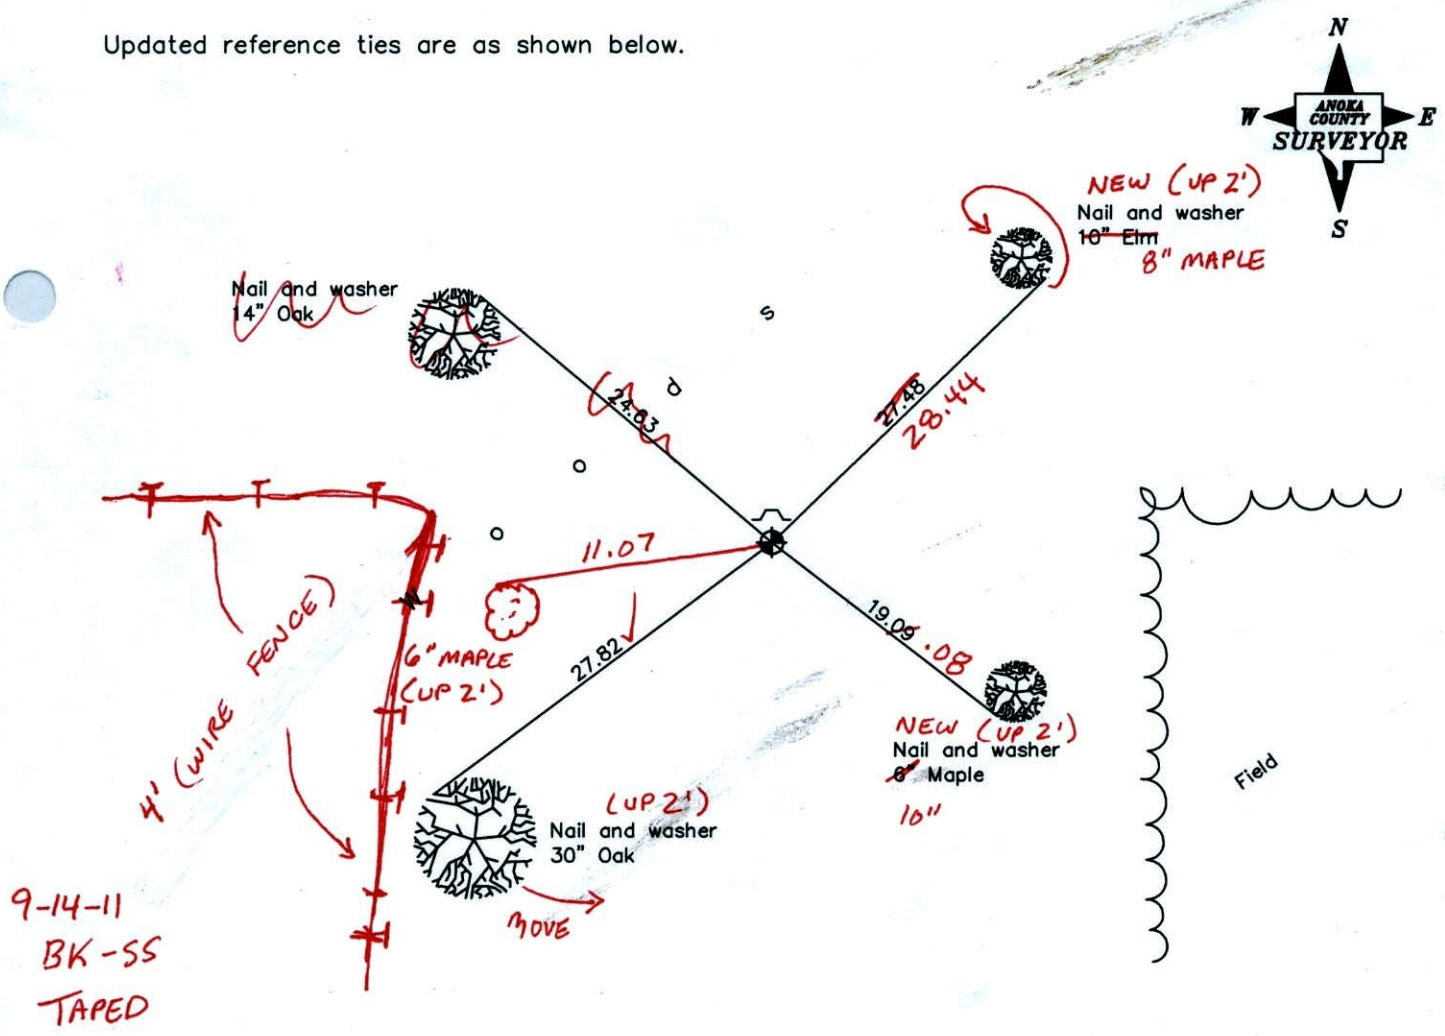 Updated reference ties are as shown below.
N
W
ANOKA
COUNTY
E
SURVEYOR
S
NEW (UP 2')
Nail and washer
10" Elm
8" MAPLE
Nail and washer
14" Oak
s
d
o
o
24.63
27.48
28.44
11.07
27.82
19.09 .08
4' (WIRE FENCE)
W
6" MAPLE
(UP 2')
NEW (UP 2')
Nail and washer
6" Maple
10"
Field
(UP 2')
Nail and washer
30" Oak
MOVE
9-14-11
BK-SS
TAPED